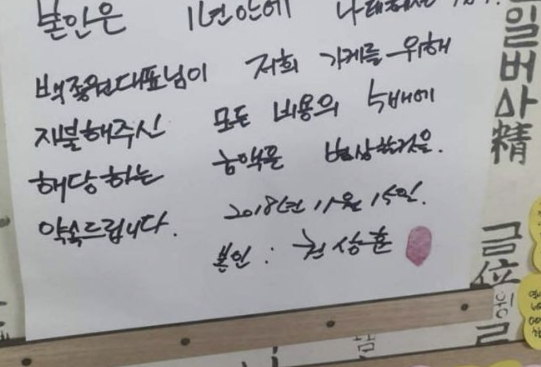 본인은 1년안에
백종원대표님이 저희 가게를 위해
지불해주신 모든 비용의 5배에
해당하는 총액을 변상할것을
약속드립니다. 2018년 11월 15일.
본인 : 권상훈
일버사精